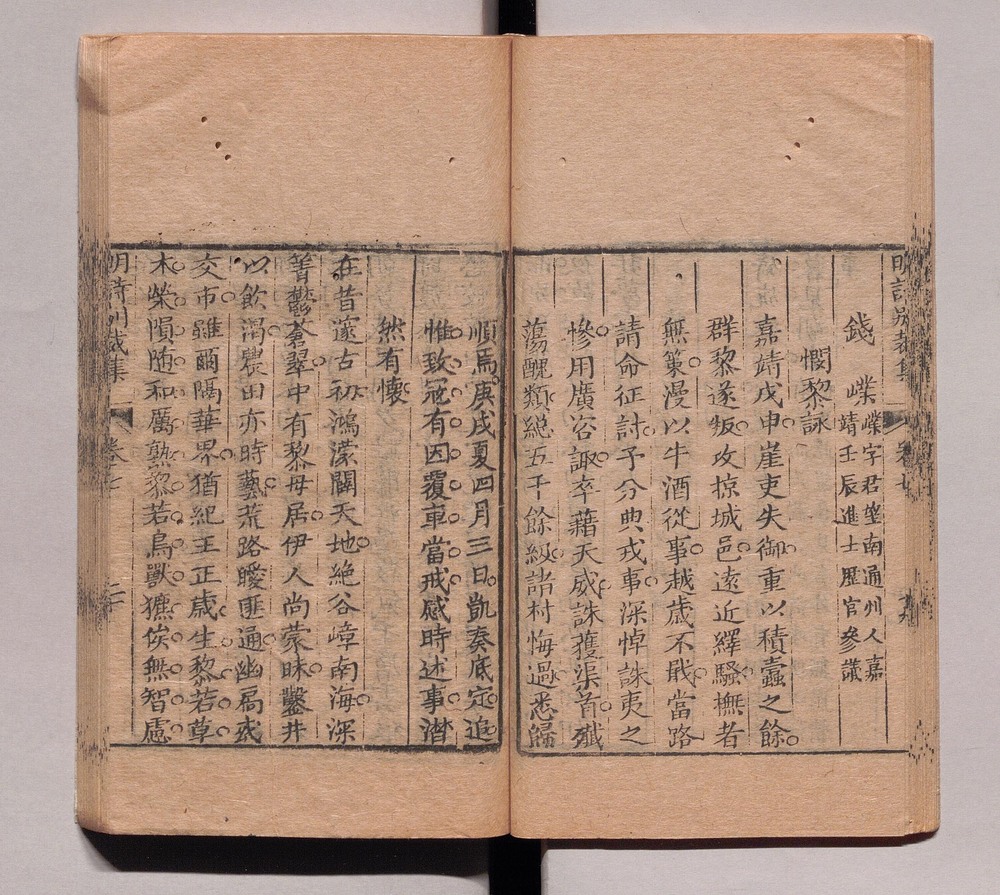 明詩別裁集 卷七
錢嶫
嶫字君望南通州人嘉
靖壬辰進士歷官參議
憫黎詠
嘉靖戊申崖吏失御重以積蠹之餘
群黎遂叛攻掠城邑遠近繹騷撫者
無策漫以牛酒從事越歲不戢當路
請命征討予分典戎事深悼誅夷之
慘用廣咨諏卒藉天威誅獲渠首殲
蕩醜類緫五千餘級諸村悔過悉歸
順焉庚戌夏四月三日凱奏底定追
惟致冦有因覆車當戒感時述事潸
然有懷
在昔邃古初鴻濛闢天地絶谷嶂南海深
箐鬱蒼翠中有黎母居伊人尚蒙昧鑿井
以飲渴農田亦時藝荒路曖匪通幽扃或
交市雖爾隔華界猶紀王正歲生黎若草
木榮隕随和厲熟黎若鳥獸獉俟無智慮
明詩別裁集 卷七 二十